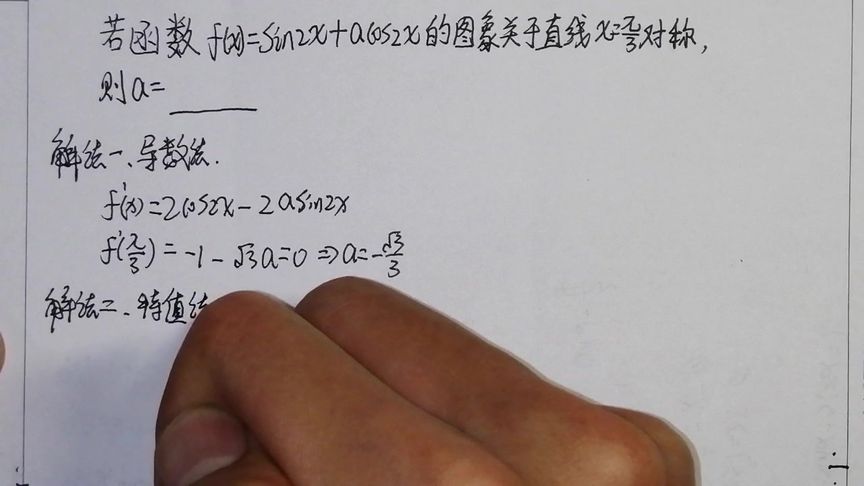 若函数 f(x)=sin2x+acos2x 的图象关于直线 x=π/3 对称,
则 a= ______
解法一、导数法.
f'(x)=2cos2x-2asin2x
f'(π/3)=-1-√3a=0 ⇒ a=-√3/3
解法二、特值法